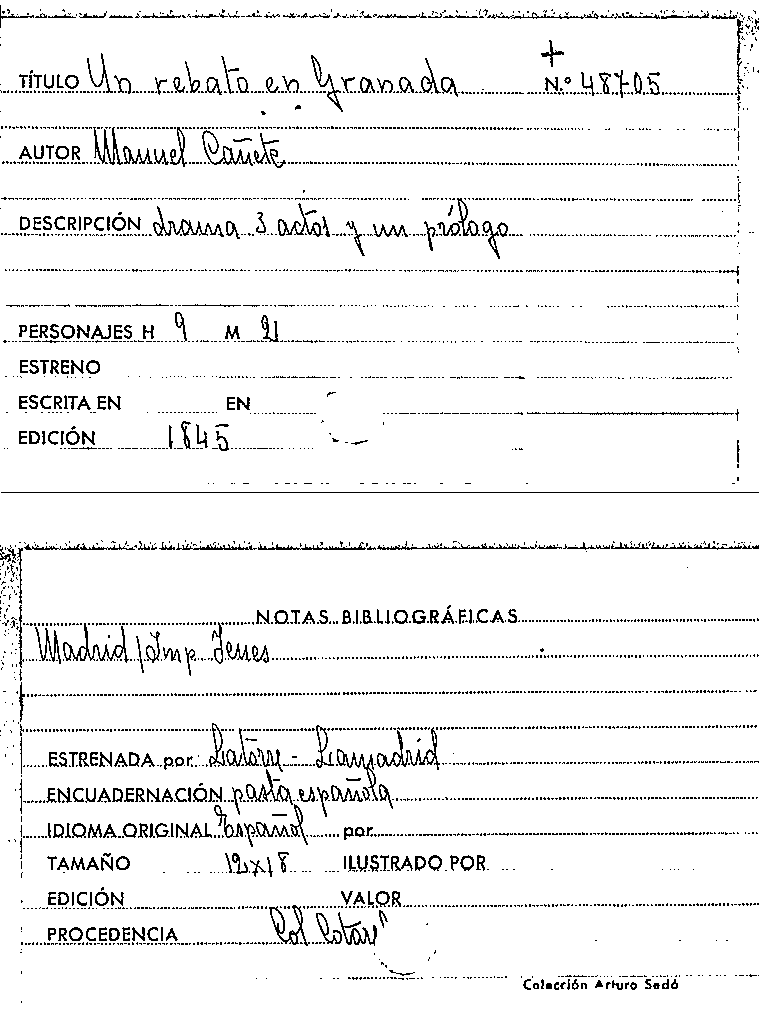 TÍTULO Un rebato en Granada
+
N.º 48705
AUTOR Manuel Cañete
DESCRIPCIÓN drama 3 actos y un prólogo
PERSONAJES H 9 M 21
ESTRENO
ESCRITA EN EN
EDICIÓN 1845
NOTAS BIBLIOGRÁFICAS
Madrid / Imp Yenes
ESTRENADA por Latorre - Lamadrid
ENCUADERNACIÓN pasta española
IDIOMA ORIGINAL Español por
TAMAÑO 12x18 ILUSTRADO POR
EDICIÓN VALOR
PROCEDENCIA Col Cotare
Colección Arturo Sedó